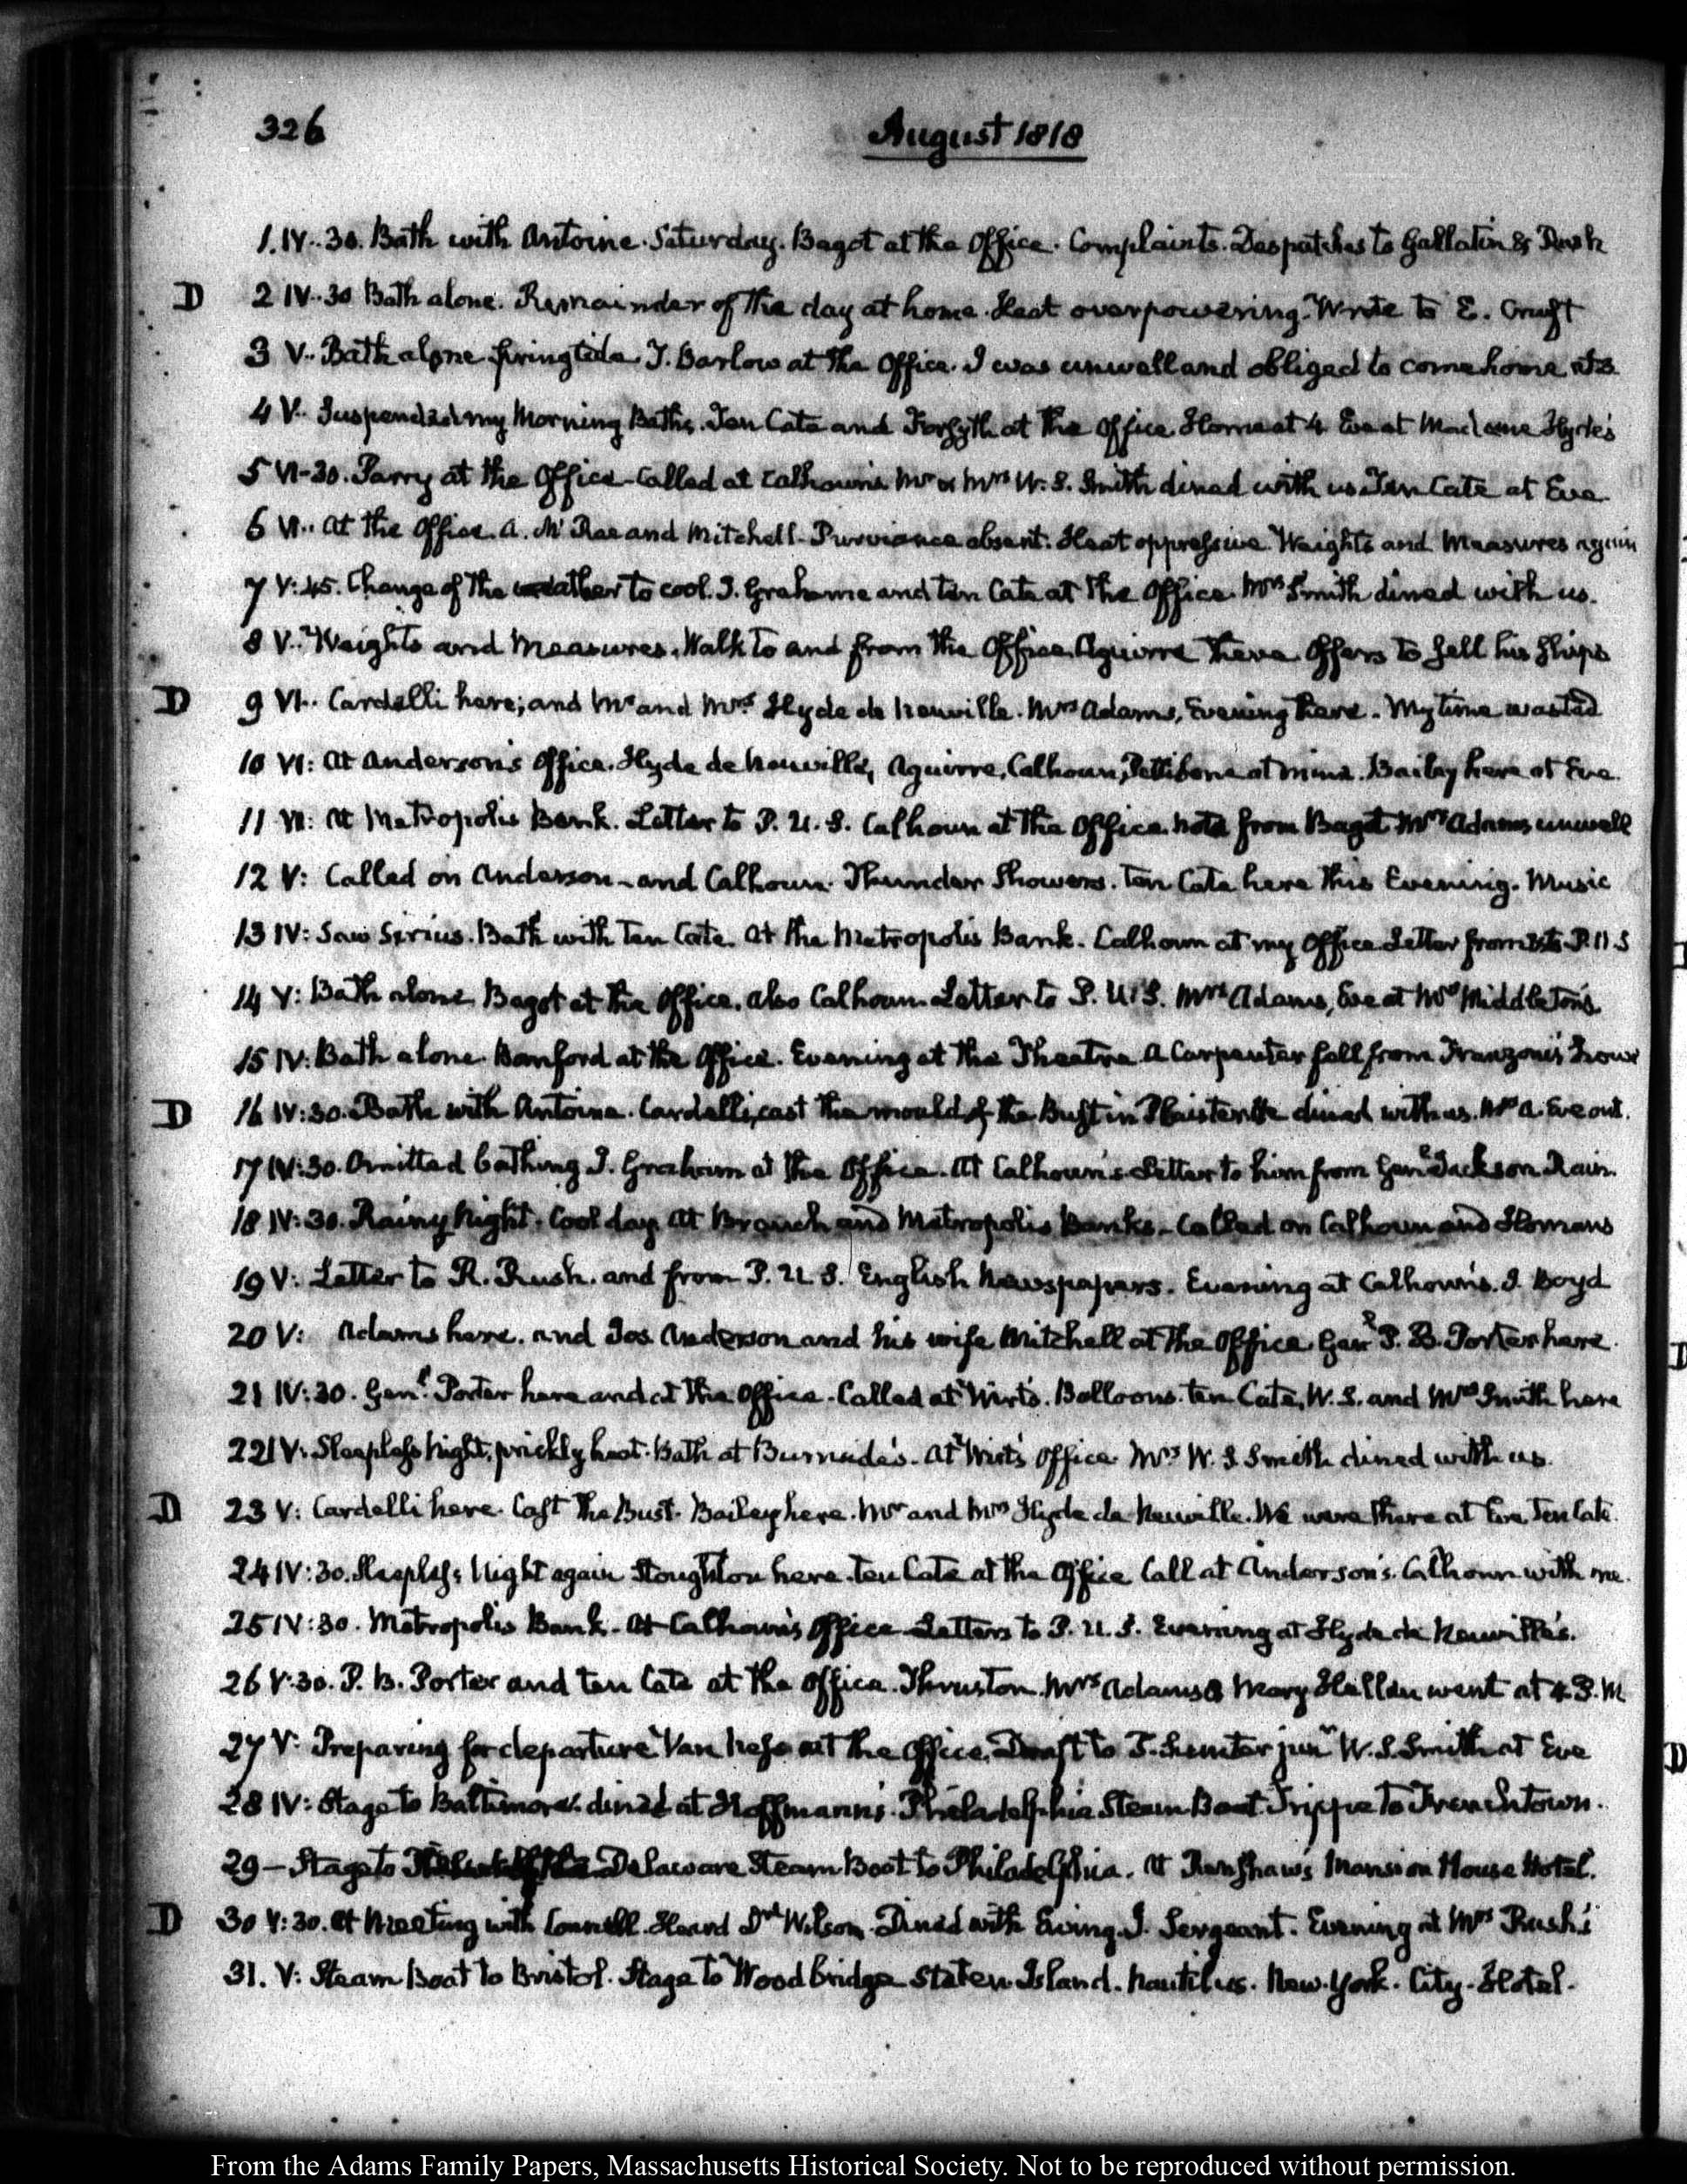 326
August 1818
1. IV..30. Bath with Antoine. Saturday. Bagot at the Office. Complaints. Despatches to Gallatin & Rush
D 2 IV..30 Bath alone. Remainder of the day at home. Heat overpowering. Write to E. Cruft
3 V.. Bath alone Springtide J. Barlow at the Office. I was unwell and obliged to come home at 3.
4 V.. Suspended my Morning Baths. Ten Cate and Forsyth at the Office Home at 4 Eve at Madame Hyde's
5 VI-30. Parry at the Office - Called at Calhoun's Mr & Mrs W. S. Smith dined with us Ten Cate at Eve
6 VI.. At the Office. A. McRae and Mitchell - Purviance absent. Heat oppressive. Weights and Measures again
7 V:45. Change of the weather to cool. J. Grahame and ten Cate at the Office. Mrs Smith dined with us.
8 V.. Weights and Measures. Walk to and from the Office. Aguirre there. Offers to sell his Ships
D 9 VI.. Cardelli here; and Mr and Mrs Hyde de Neuville. Mrs Adams, Evening there. My time wasted
10 VI: At Anderson's Office. Hyde de Neuville, Aguirre, Calhoun, Pettibone at mine. Bailey here at Eve.
11 VI: At Metropolis Bank. Letter to P. U. S. Calhoun at the Office. Note from Bagot Mrs Adams unwell
12 V: Called on Anderson - and Calhoun. Thunder Showers. Ten Cate here this Evening. Music
13 IV: Saw Sirius. Bath with Ten Cate. At the Metropolis Bank. Calhoun at my Office. Letter from & to P. U S
14 V: Bath alone Bagot at the Office, also Calhoun. Letter to P. U. S. Mrs Adams, Eve at Mrs Middleton's
15 IV: Bath alone. Bomford at the Office. Evening at the Theatre. A Carpenter fall from Franzoni's house
D 16 IV:30. Bath with Antoine. Cardelli, cast the mould of the Bust in Plaister He dined with us. Mrs A. Eve out.
17 IV:30. Omitted bathing J. Graham at the Office. At Calhoun's. Letter to him from Genl Jackson. Rain.
18 IV:30. Rainy Night. Cool day. At Branch and Metropolis Banks - Called on Calhoun and Homans
19 V: Letter to R. Rush. and from P. U. S. English Newspapers. Evening at Calhoun's. J. Boyd
20 V: Adams here. and Jos. Anderson and his wife Mitchell at the Office. Genl P. B. Porter here.
21 IV:30. Genl Porter here and at the Office. Called at Wirt's. Balloons. ten Cate, W. S. and Mrs Smith here
22 IV: Sleepless Night. prickly heat. Bath at Burnside's. At Wirt's Office. Mrs W. S Smith dined with us.
D 23 V: Cardelli here. Cast the Bust. Bailey here. Mr and Mrs Hyde de Neuville. We were there at Eve. Ten Cate.
24 IV:30. Sleepless Night again Stoughton here. ten Cate at the Office Call at Anderson's. Calhoun with me.
25 IV:30. Metropolis Bank - At Calhoun's Office Letters to P. U. S. Evening at Hyde de Neuville's.
26 V:30. P. B. Porter and ten Cate at the Office. Thruston. Mrs Adams & Mary Hellen went at 4 P. M
27 V: Preparing for departure Van Ness at the Office. Draft to T. Sumter junr W. S. Smith at Eve
28 IV: Stage to Baltimore. dined at Hoffmann's. Philadelphia Steam Boat. Trippe to Frenchtown.
29 - Stage to Delaware Steam Boat to Philadelphia. At Renshaw's Mansion House Hotel.
D 30 V:30. At Meeting with Connell. Heard Dr Wilson. Dined with Ewing. J. Sergeant. Evening at Mrs Rush's
31. V: Steam Boat to Bristol. Stage to Woodbridge Staten Island. Nautilus. New-York. City-Hotel.
From the Adams Family Papers, Massachusetts Historical Society. Not to be reproduced without permission.